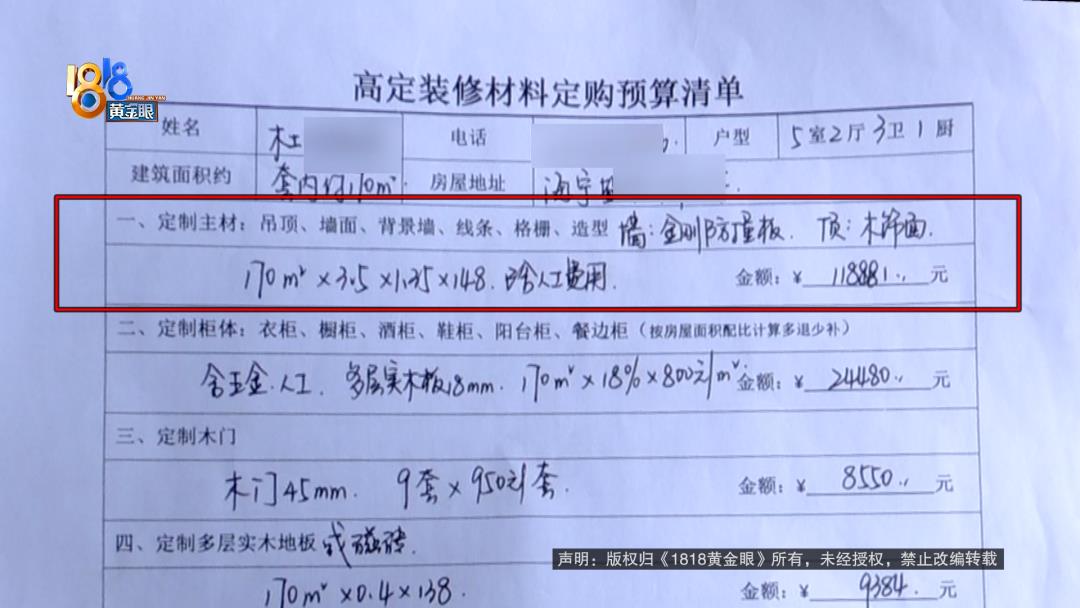 1818
HUANG JIN YAN
黄金眼
高定装修材料定购预算清单
姓名 杜 电话 户型 5室2厅3卫1厨
建筑面积约 套内约170m² 房屋地址 海宁
一、定制主材：吊顶、墙面、背景墙、线条、格栅、造型 墙：金刚防撞板. 顶：木饰面.
170m²×3.5×1.35×148. 已含人工费用. 金额：¥ 118881.. 元
二、定制柜体：衣柜、橱柜、酒柜、鞋柜、阳台柜、餐边柜（按房屋面积配比计算多退少补）
含五金.人工. 多层实木板18mm. 170m²×18%×800元/m² 金额：¥ 24480.. 元
三、定制木门
木门45mm. 9套×950元/套. 金额：¥ 8550.. 元
四、定制多层实木地板 或磁砖.
170m²×0.4×138. 金额：¥ 9384. 元
声明：版权归《1818黄金眼》所有，未经授权，禁止改编转载